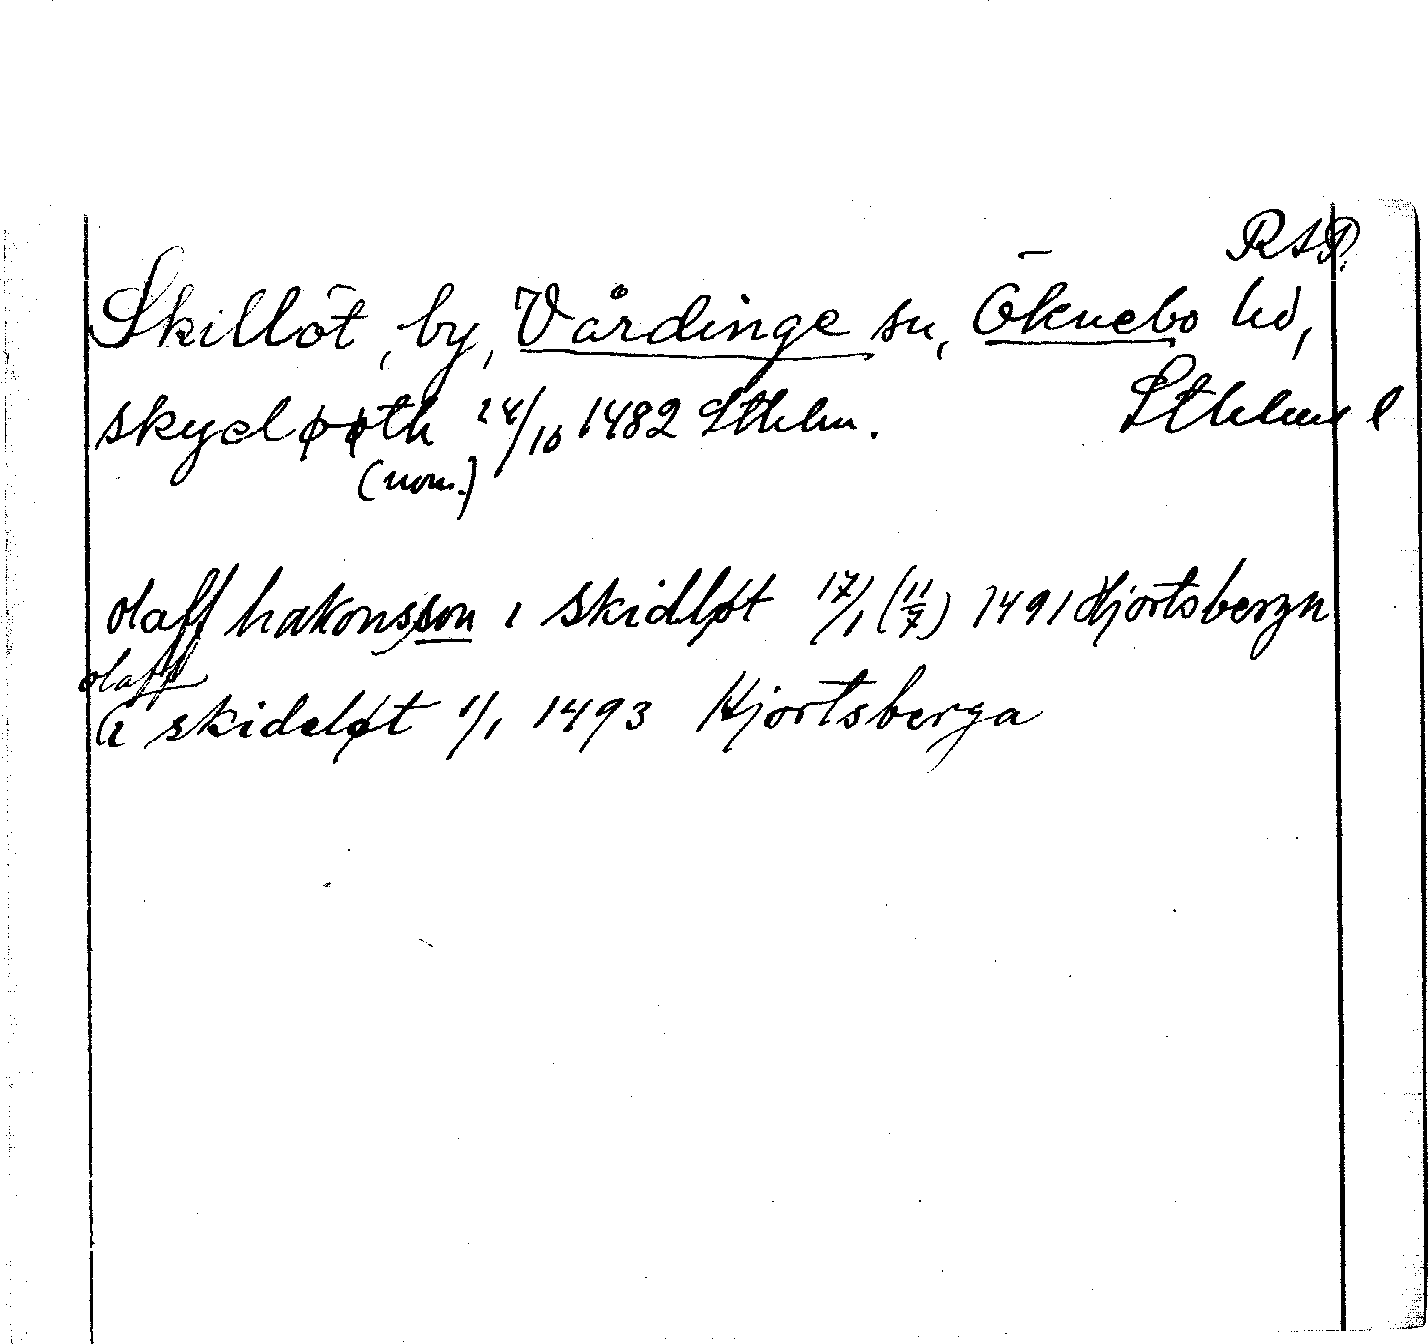 RAP.
Skillöt, by, Vårdinge sn, Öknebo hd,
Sthlms l
skydløøth 24/10 1482 Sthlm.
(nom.)
olaff hakonsson i skidløt 17/1 (11/9) 1491 Hjortsberga
olaff
i skideløt 1/1 1493 Hjortsberga